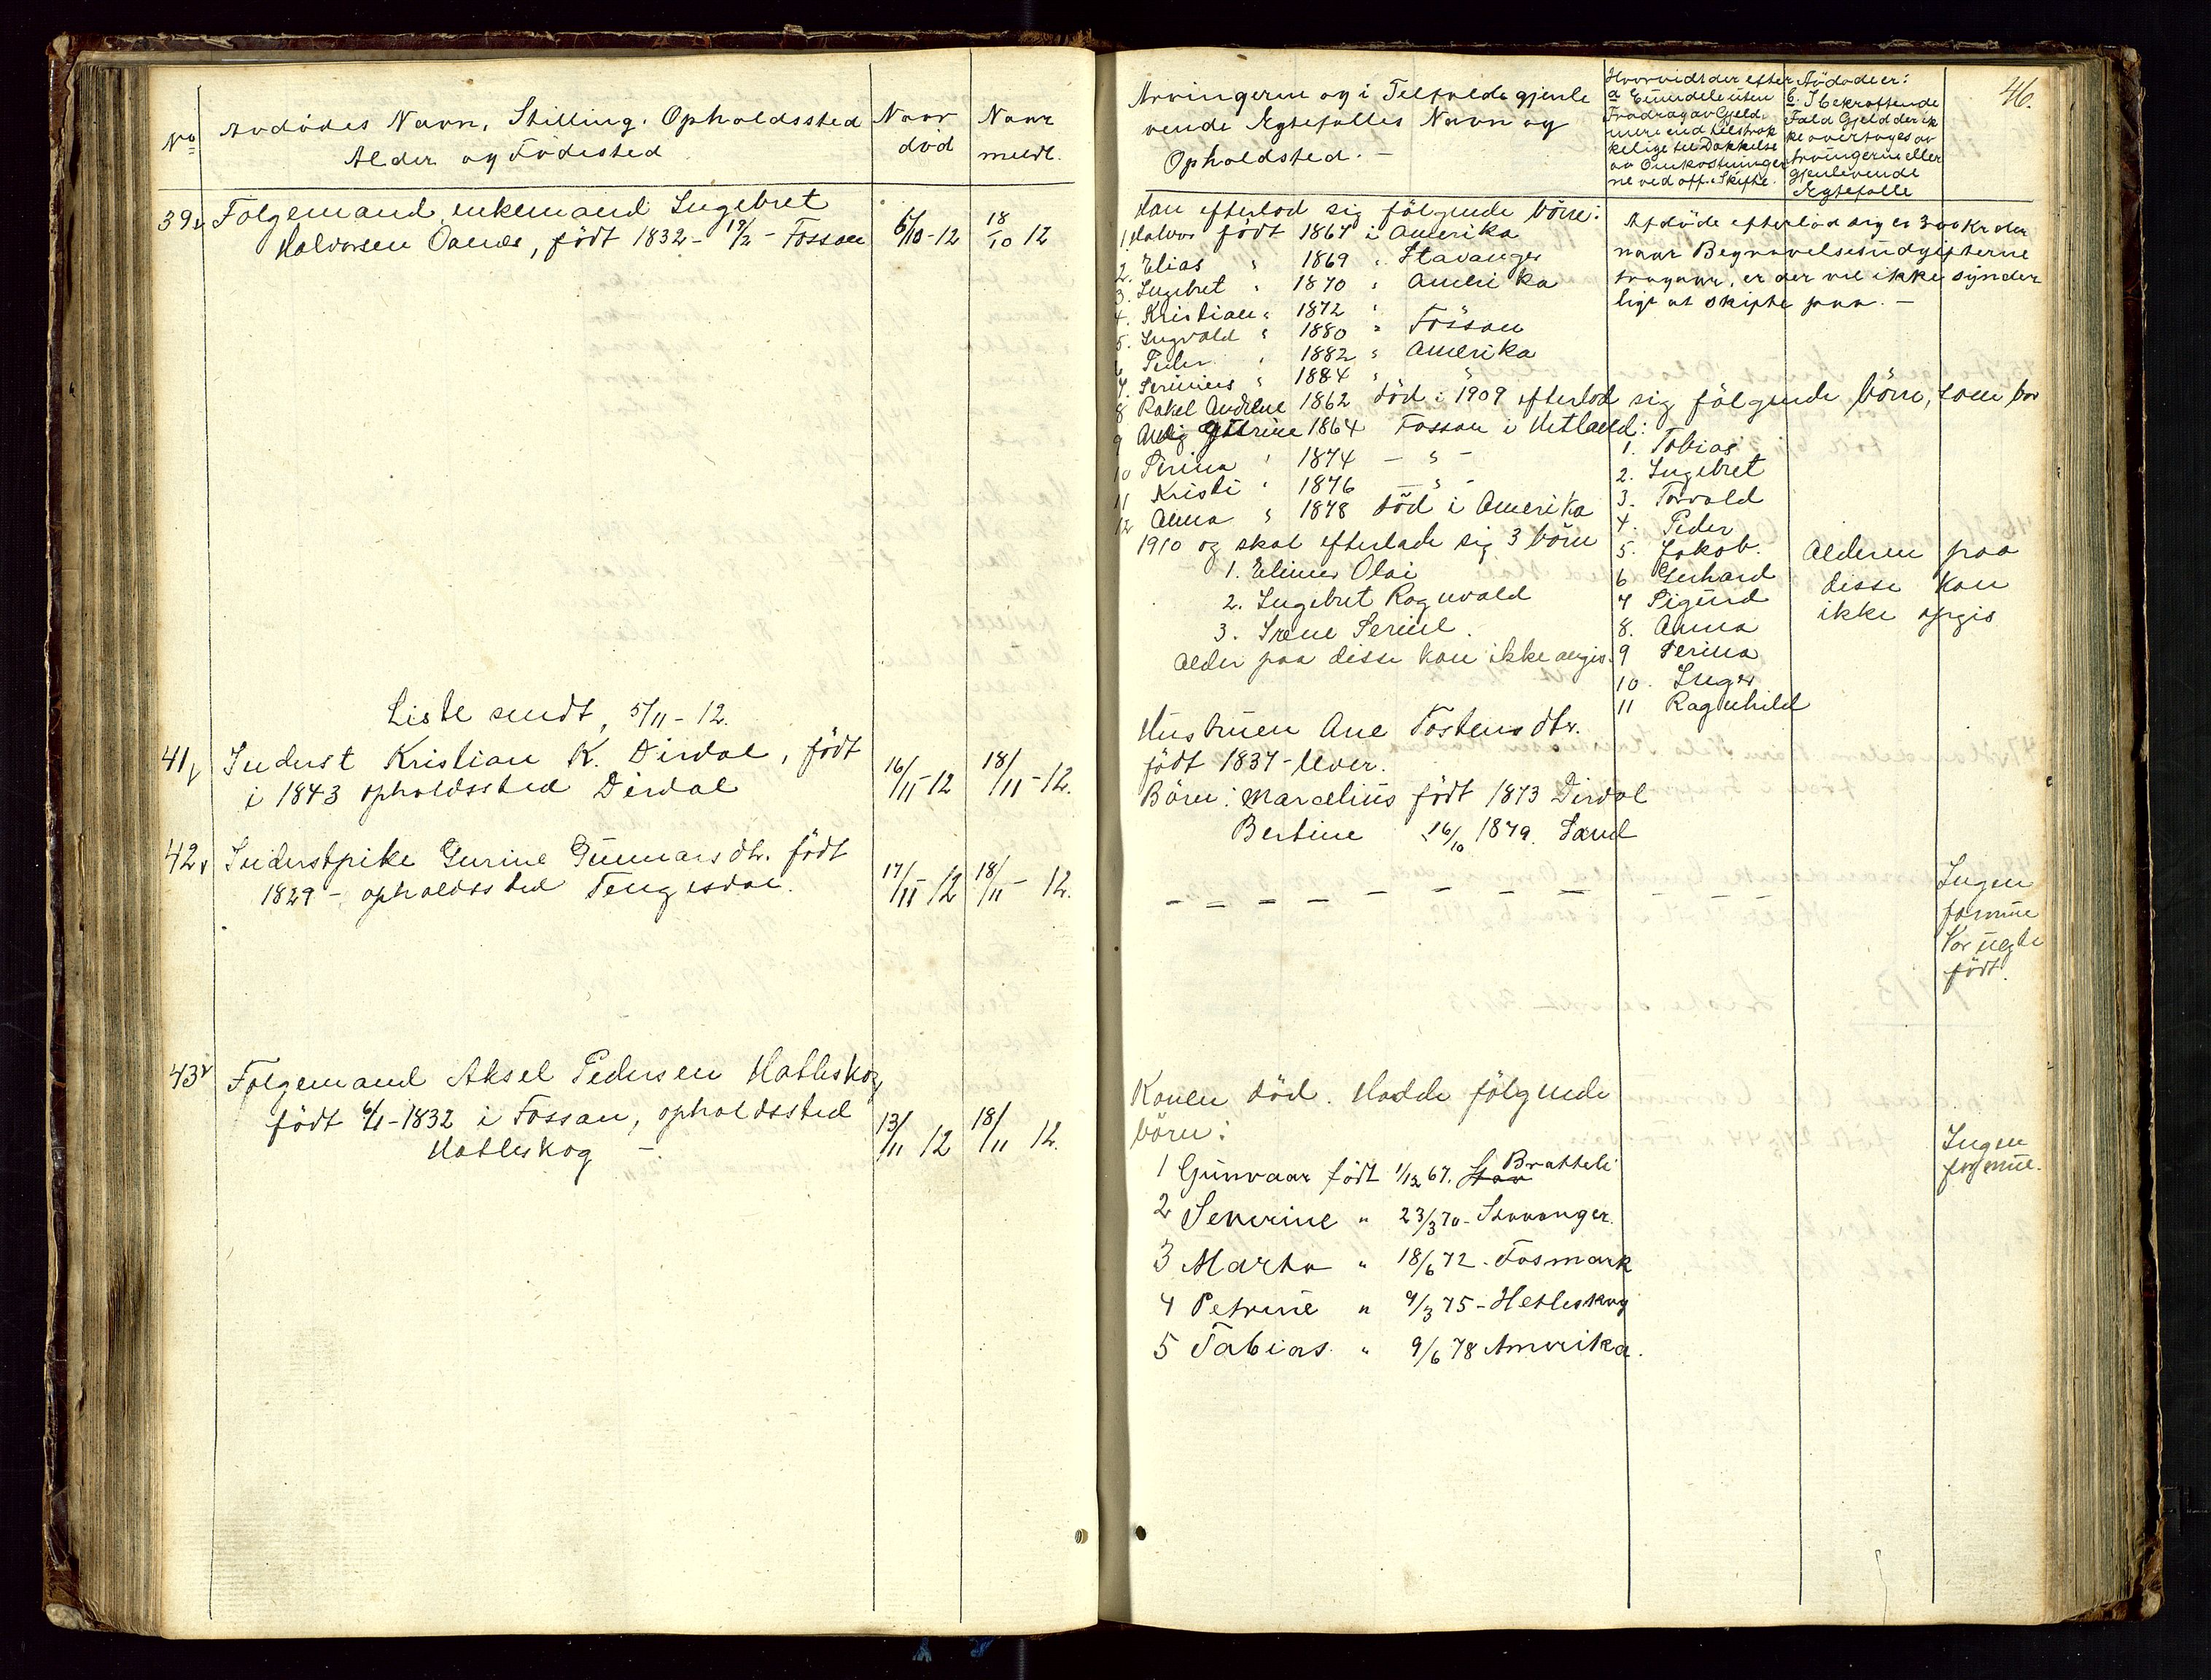 No Avdödes Navn, Stilling, Opholdssted
Alder og Födested
Naar
död
Naar
meldt.
39 Folgemand, enkemand Ingebret
Halvorsen Oanes, født 1832 - 19/2 - Fossan
6/10-12
18/10 12
Liste sendt, 5/11 - 12.
41 Inderst Kristian K. Dirdal, født
i 1843 opholdssted Dirdal
16/11-12
18/11-12.
42 Inderstpike Gurine Gunnarsdtr. født
1829 - opholdssted Tengesdal.
17/11-12
18/11-12.
43 Folgemand Aksel Pedersen Hatleskog,
født 6/1-1832 i Fossan, opholdssted
Hatleskog -
13/11 12
18/11 12.
46.
Arvingerne og i Tilfælde gjenle
vende Egtefælles Navn og
Opholdsted. -
Hvorvidt der efter
a Eiendele uten
Fradrag av Gjeld,
mere end tilstræk
kelige til Dækkelse
av Omkostninger
ne ved off. Skifte.
Avdöde er:
b. I bekræftende
Fald Gjeld der ik
ke overtages av
Arvingerne eller
gjenlevende
Egtefælle
Han efterlod sig følgende börn:
1. Halvor født 1867 i Amerika
2. Elias " 1869 " Stavanger
3. Ingebret " 1870 " Amerika
4. Kristian " 1872 "
5. Ingvald " 1880 " Fossan
6 Peder " 1882 " Amerika
7. Serinius " 1884 " "
8 Rakel Andrene 1862 död i 1909 efterlod sig følgende börn, som bor
9 1864 Fossan i Hetland:
10 Serina " 1874 - " -
11 Kristi " 1876 - " -
12 Anna " 1878 död i Amerika
1910 og skal efterlade sig 3 börn
1. Elimer Olai
2. Ingebret Ragnvald
3. Irene Serine.
Alder paa disse kan ikke angis.
Afdöde efterlod sig ca 300 Kr der
naar Begravelsesudgifterne
fragaar, er der vel ikke synder
ligt at skifte paa. -
1. Tobias
2. Ingebret
3. Torvald
4. Peder
5. Jakob.
6 Gerhard
7 Sigurd
8. Anna
9 Serina
10. Inger
11 Ragnhild
Alderen paa
disse kan
ikke opgis
Hustruen Ane Tostensdtr.
født 1837 - lever.
Börn: Marcelius født 1873 Dirdal
Bertine 26/10 1879. Sand
- - - - - - - - - - -
Ingen
formue
Var uegte
født.
Konen død. Hadde følgende
börn:
1 Gunvaar født 1/12 67. Stav Bratteli
2 Severine " 23/3 70 - Stavanger.
3 Marta " 18/6 72 - Fosmark
4 Petrine " 9/3 75 - Hetleskog
5 Tobias " 9/6 78 Amerika.
Ingen
formue.